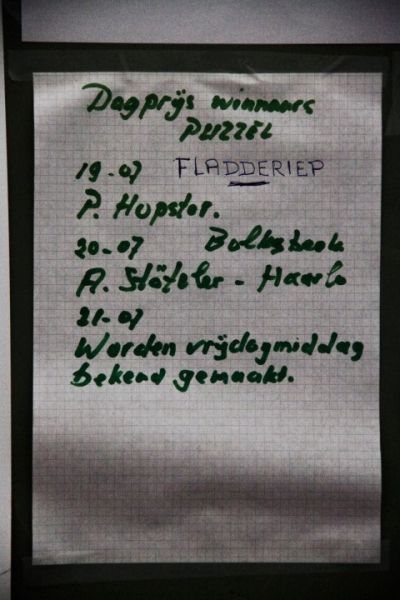 Dagprijs winnaars
PUZZEL
19-07 FLADDERIEP
P. Hupster.
20-07
A. - Haarle
21-07
Worden vrijdagmiddag
bekend gemaakt.